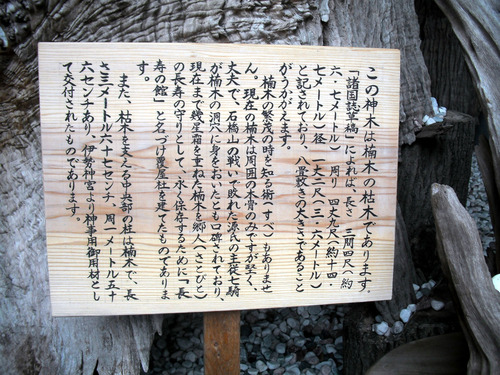 この神木は楠木の枯木であります。
「諸国誌草稿」によれば、長さ 三間四尺（約
六、七メートル）周り 四丈九尺（約十四・
七メートル）径 一丈二尺（三・六メートル）
と記されており、八畳敷きの大きさであること
がうかがえます。
楠木の繁茂の時を知る術（すべ）もありませ
ん。現在の楠木は周囲の木骨のみですが堅く、
丈夫で、石橋山の戦いに敗れた源氏の主従七騎
が楠木の洞穴に身をおいたとも口碑されており、
現在まで幾星霜を重ねた楠木を郷人（さとびと）
の長寿の守りとして、永く保存するために「長
寿の館」と名づけ覆屋社を建てたものでありま
す。
また、枯木をまえる中央部の柱は楠木で、長
さ三メートル六十七センチ、周一メートル五十
六センチあり、伊勢神宮より神事用御用材とし
て交付されたものであります。